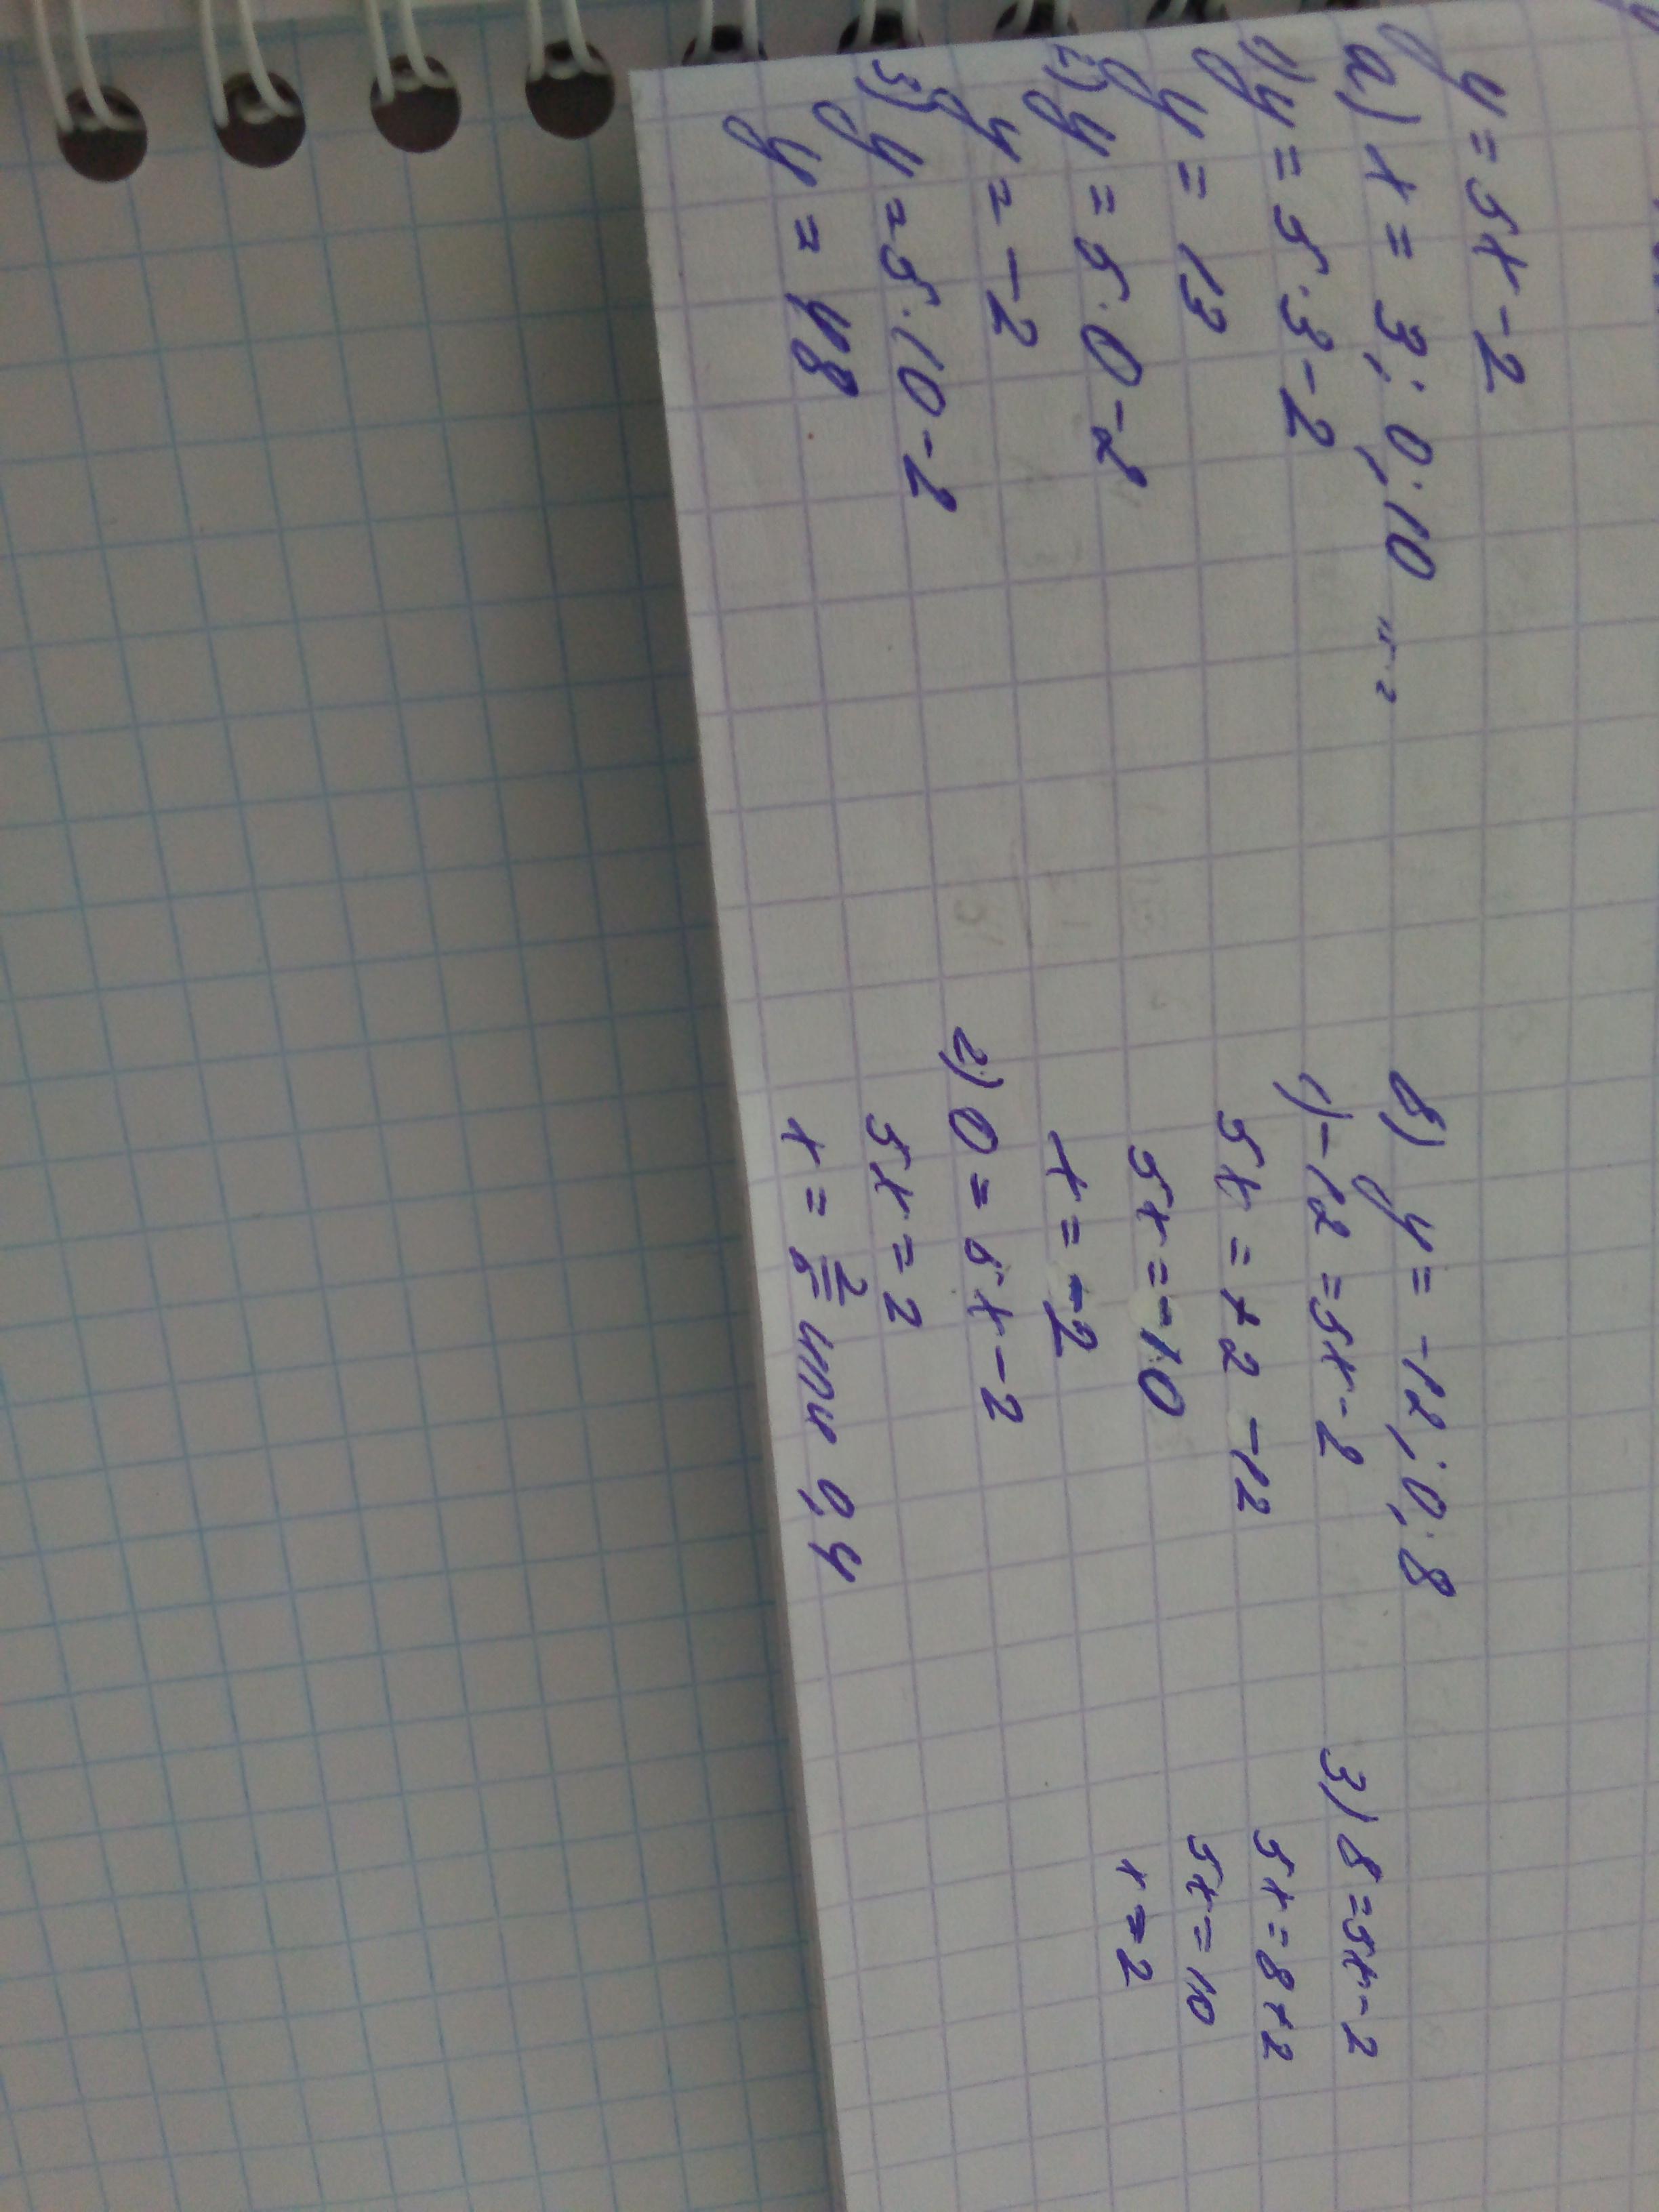 y = 5x - 2
а) x = 3; 0; 10
1) y = 5·3 - 2
y = 13
2) y = 5·0 - 2
y = -2
3) y = 5·10 - 2
y = 48
б) y = -12; 0; 8
1) -12 = 5x - 2
5x = +2 -12
5x = -10
x = -2
2) 0 = 5x - 2
5x = 2
x = 2/5 или 0,4
3) 8 = 5x - 2
5x = 8 + 2
5x = 10
x = 2